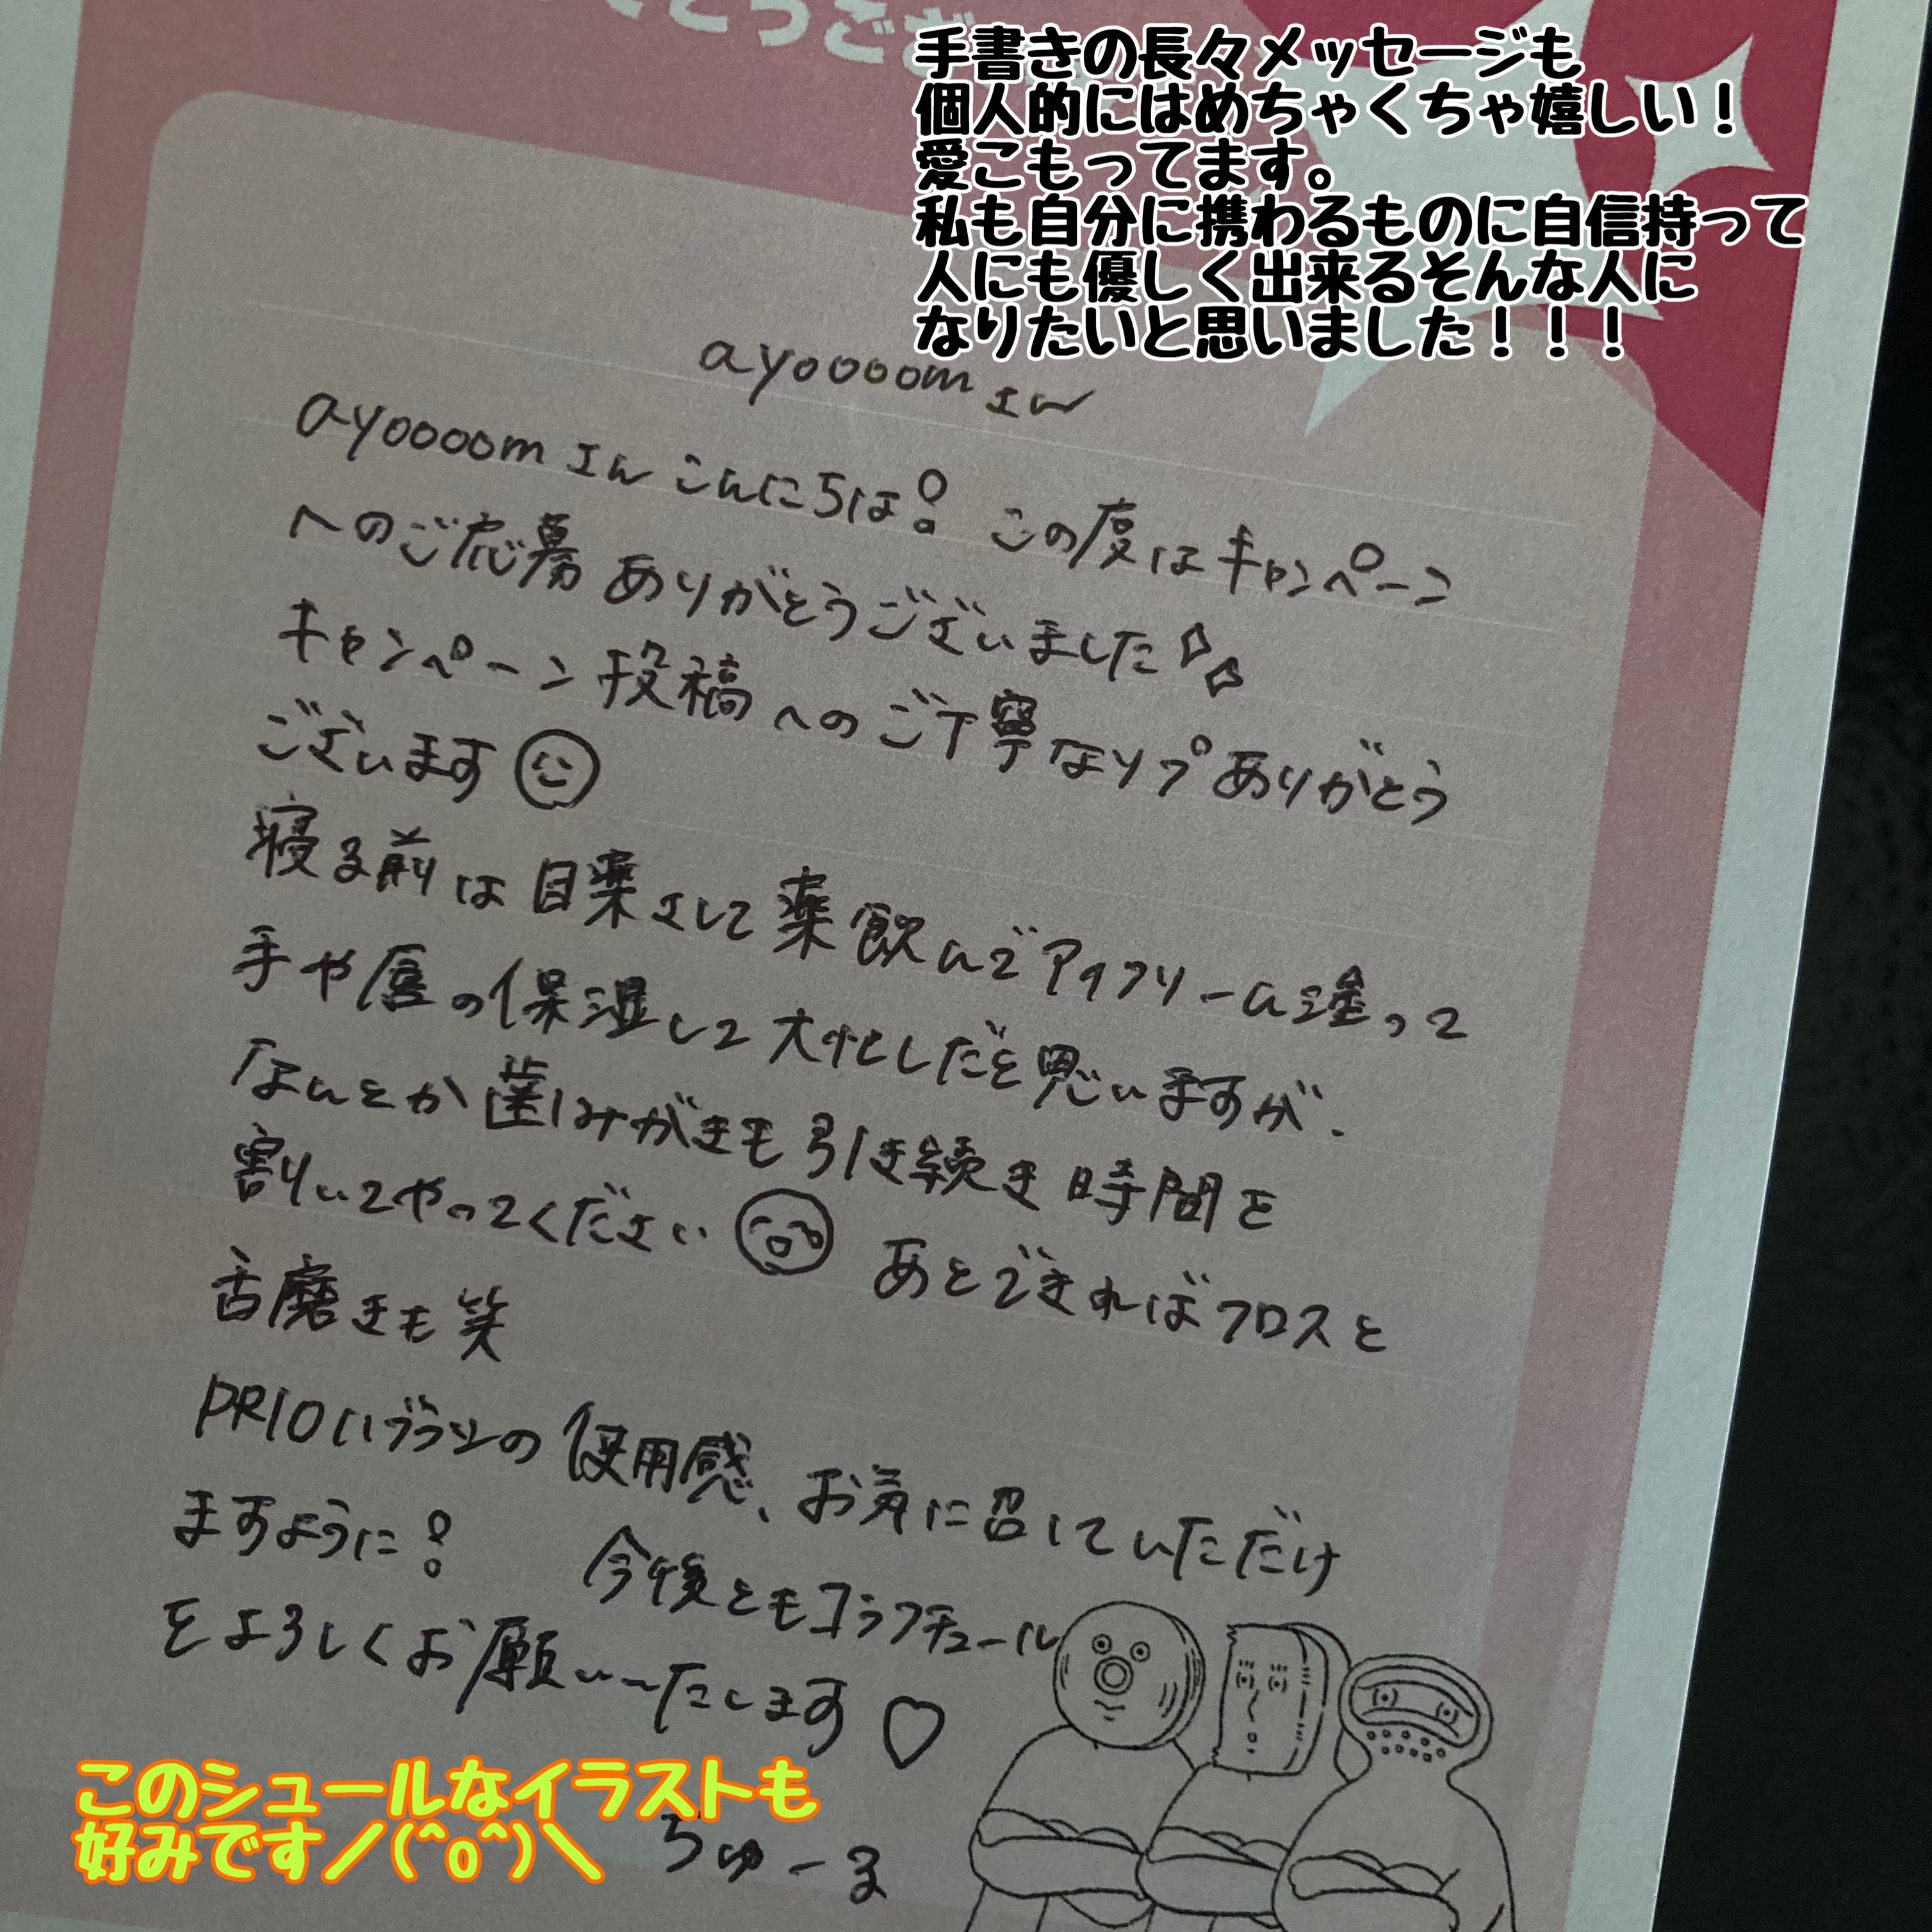 とうござ
手書きの長々メッセージも
個人的にはめちゃくちゃ嬉しい！
愛こもってます。
私も自分に携わるものに自信持って
人にも優しく出来るそんな人に
なりたいと思いました！！！
ayoooomさん
ayoooomさん こんにちは！ この度はキャンペーン
へのご応募 ありがとうございました
キャンペーン投稿へのご丁寧なリプありがとう
ございます
寝る前は目薬さして薬飲んでアイクリーム塗って
手や唇の保湿して大忙しだと思いますが、
なんとか歯みがきも引き続き時間を
割いてやってください あとできればフロスと
舌磨きも笑
PRIOハブラシの使用感、お気に召していただけ
ますように！ 今後ともコラフチュール
をよろしくお願いいたします♡
ちゅーる
このシュールなイラストも
好みです／(^o^)＼